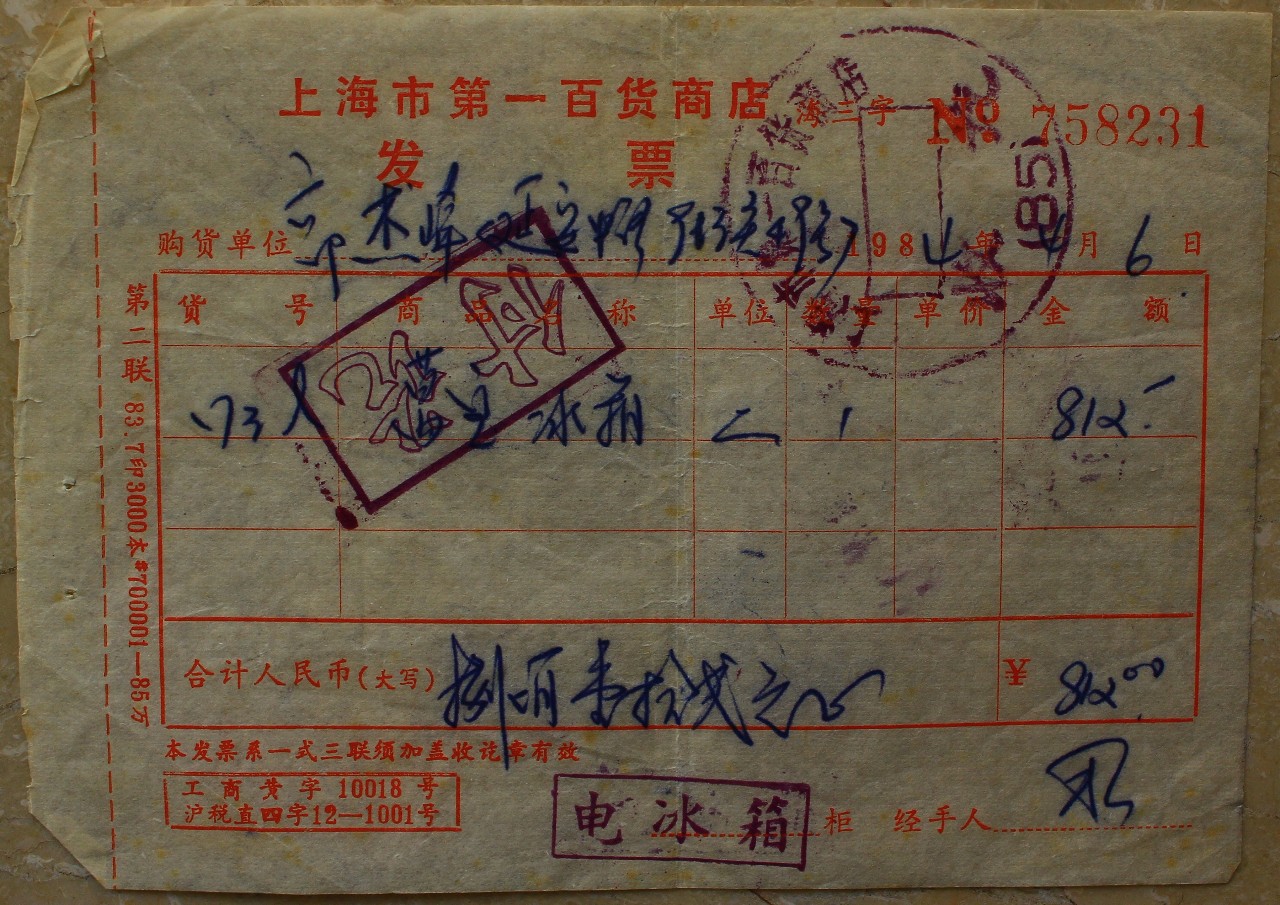 上海市第一百货商店 沪三字 № 758231
发票
购货单位 1984年4月6日
货号 商品名称 单位 数量 单价 金额
冰箱 1 812.-
合计人民币(大写) 捌百壹拾贰元 ¥ 812.00
本发票系一式三联须加盖收讫章有效
工商黄字10018号
沪税直四字12—1001号
电冰箱 柜 经手人
第二联 83.7印3000本#700001—85万